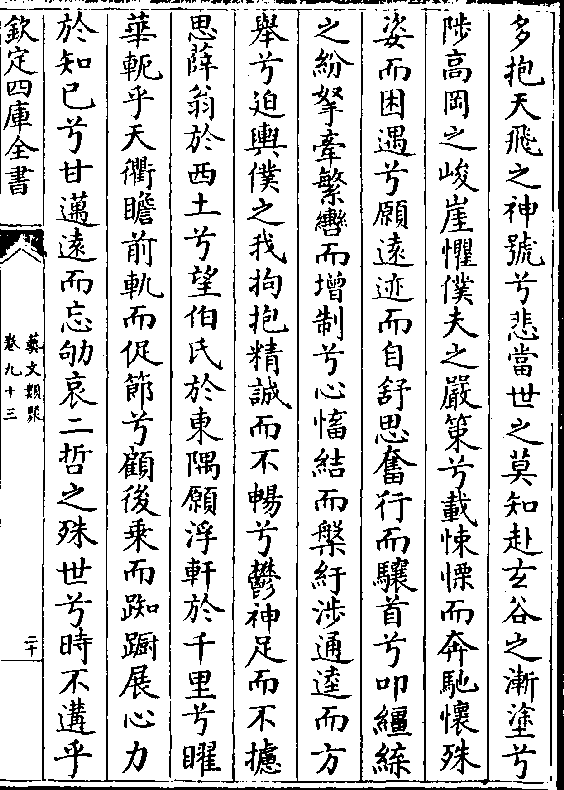 多抱天飛之神號兮悲當世之莫知赴玄谷之漸塗兮
陟高岡之峻崖懼僕夫之嚴策兮載悚慄而奔馳懷殊
姿而困遇兮願遠迹而自舒思奮行而驤首兮叩繮緤
之紛拏牽繁轡而增制兮心慉結而槃紆涉通逵而方
舉兮迫輿僕之我拘抱精誠而不暢兮鬱神足而不攄
思薛翁於西土兮望伯氏於東隅願浮軒於千里兮曜
華軛乎天衢瞻前軌而促節兮顧後乘而踟蹰展心力
於知己兮甘邁遠而忘劬哀二哲之殊世兮時不遘乎
欽定四庫全書
藝文類聚
卷九十三
二十